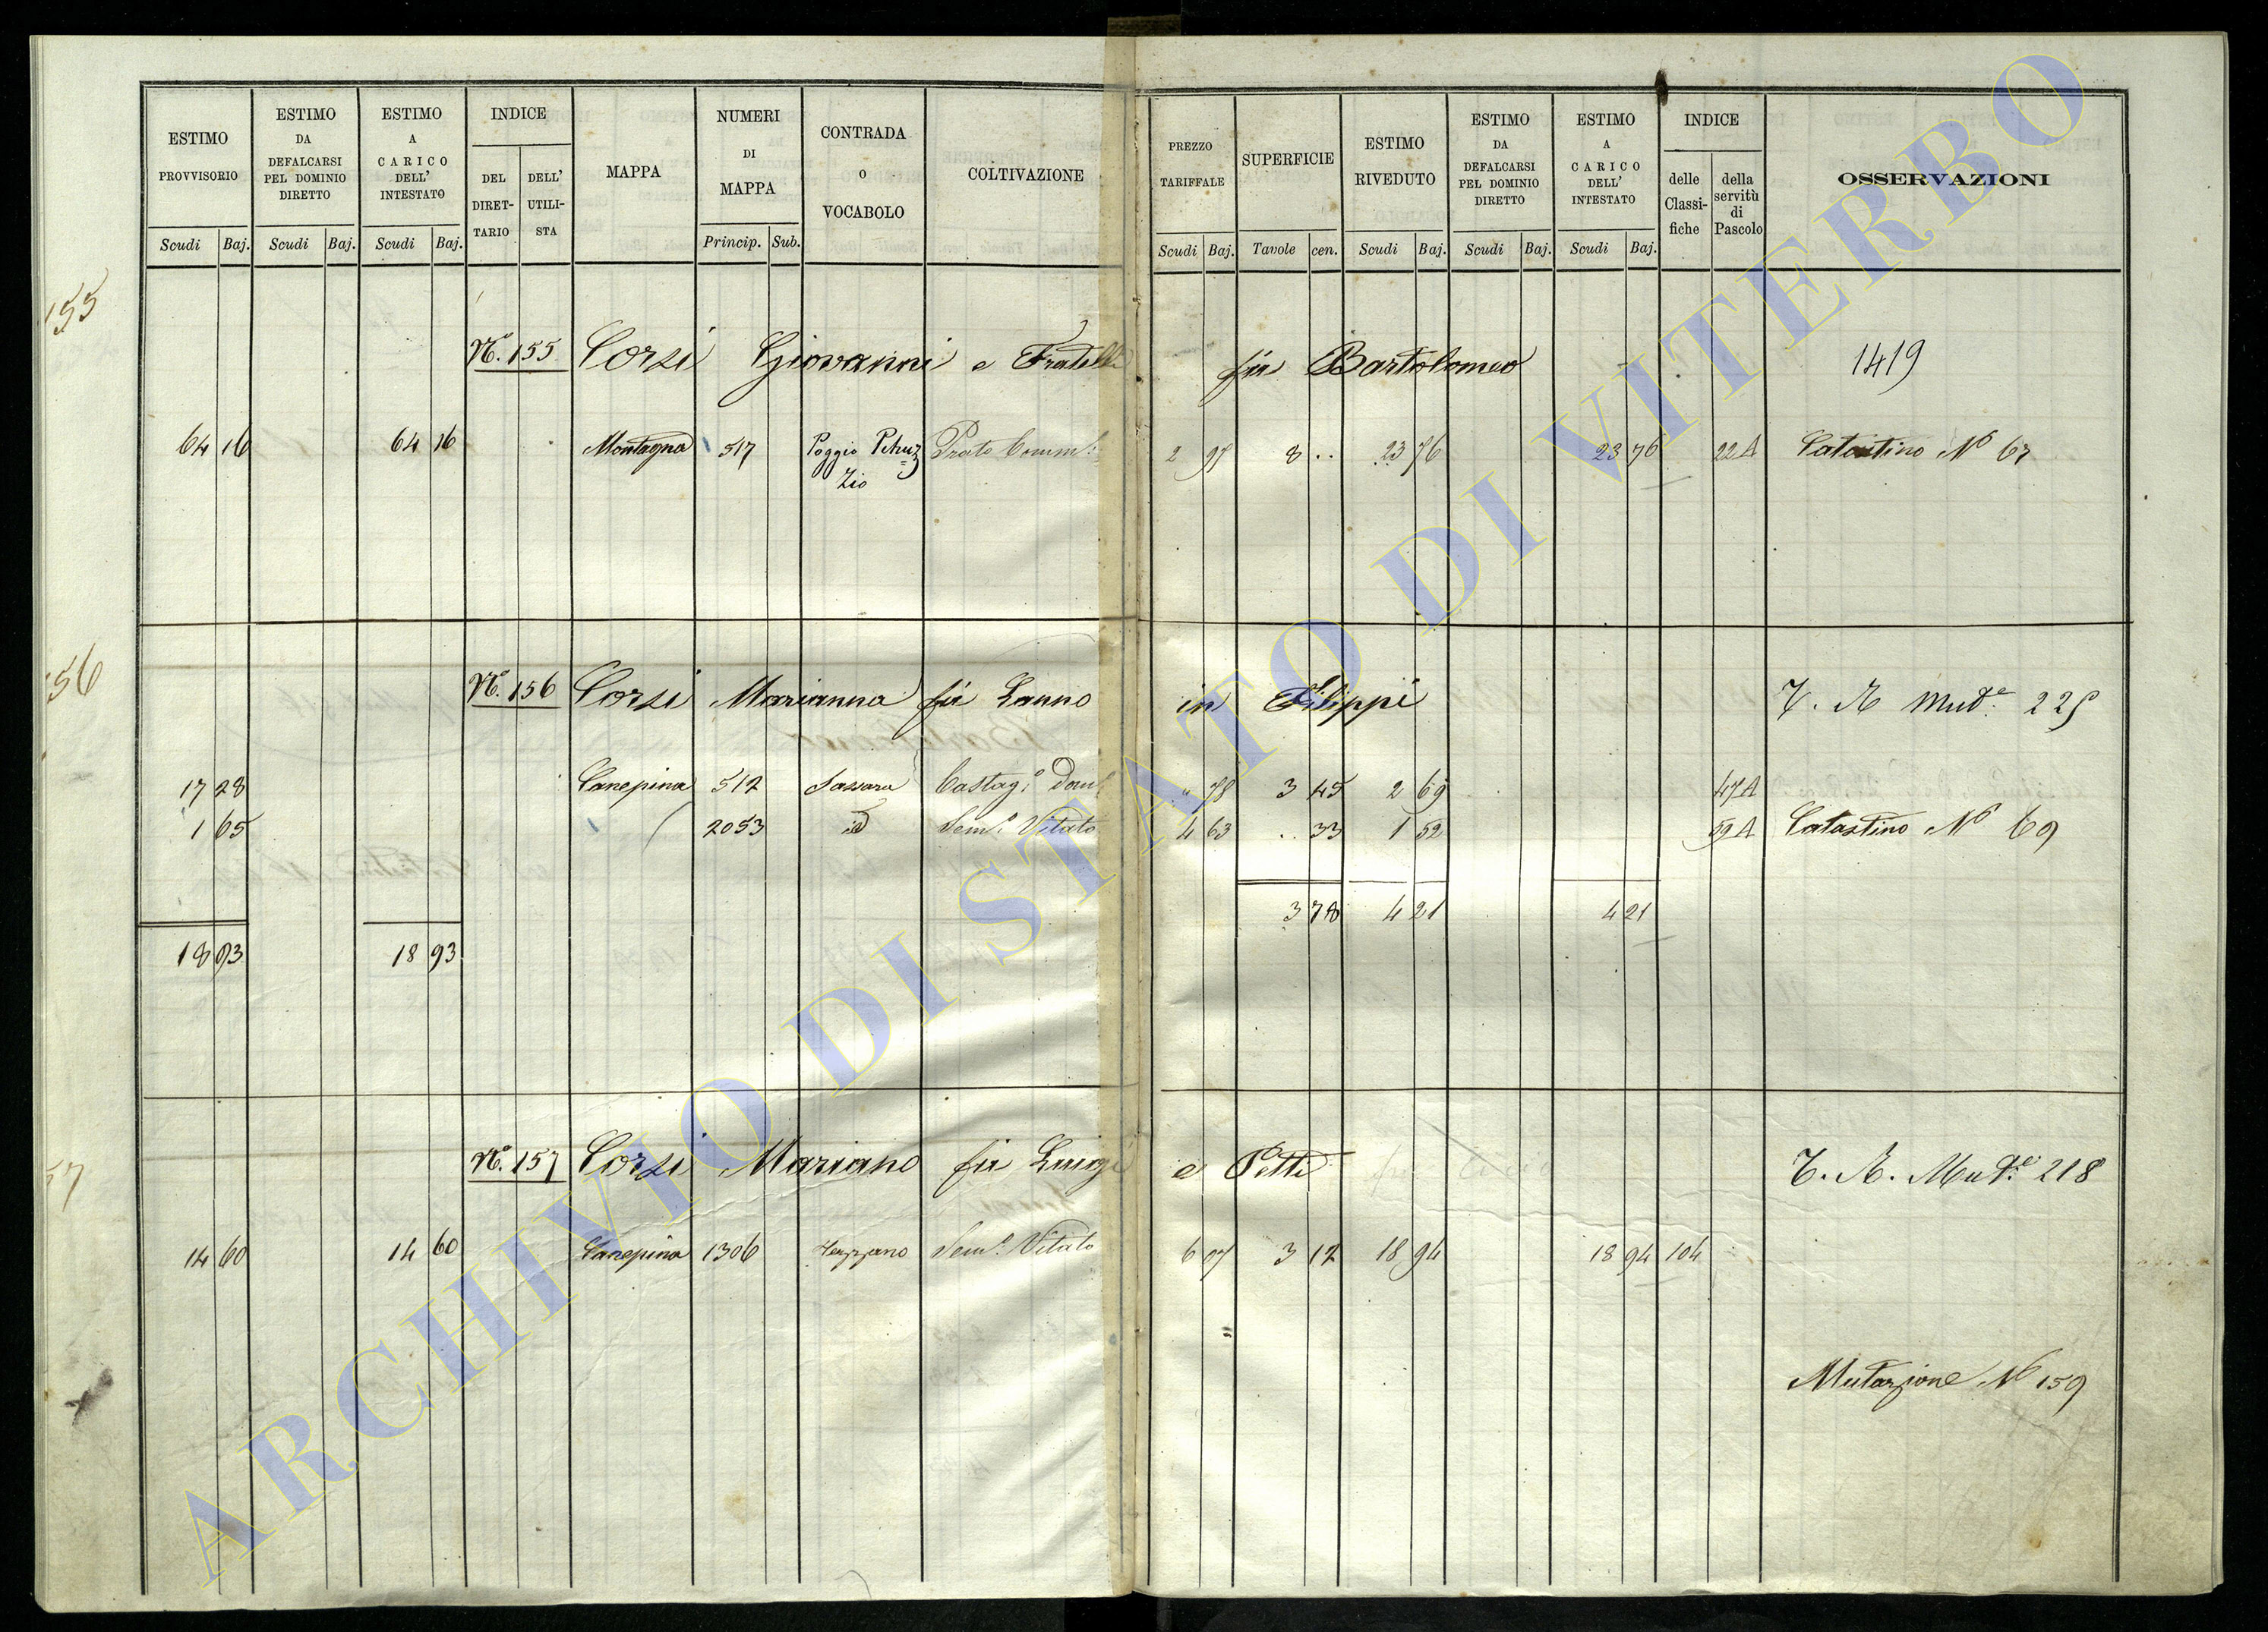 ESTIMO PROVVISORIO Scudi Baj.
ESTIMO DA DEFALCARSI PEL DOMINIO DIRETTO Scudi Baj.
ESTIMO A CARICO DELL' INTESTATO Scudi Baj.
INDICE DEL DIRET-TARIO DELL' UTILI-STA
MAPPA
NUMERI DI MAPPA Princip. Sub.
CONTRADA O VOCABOLO
COLTIVAZIONE
PREZZO TARIFFALE Scudi Baj.
SUPERFICIE Tavole cen.
ESTIMO RIVEDUTO Scudi Baj.
ESTIMO DA DEFALCARSI PEL DOMINIO DIRETTO Scudi Baj.
ESTIMO A CARICO DELL' INTESTATO Scudi Baj.
INDICE delle Classi-fiche della servitù di Pascolo
OSSERVAZIONI
155
N.° 155 Corsi Giovanni e Fratelli fu Bartolomeo 1419
64 16 64 16 Montagna 517 Poggio Petruz= Prato 2 97 8 .. 23 76 23 76 22A Catastino N° 67
zio
156
N.° 156 Corsi Marianna fu Zanno in Filippi T. N. Mud.e 225
17 28 Canepina 512 Sassara Castag.o Dom " 78 3 45 2 69 47A
1 65 2053 id Sem.o Vitato 4 63 .. 33 1 52 59A Catastino N° 69
3 78 4 21 4 21
18 93 18 93
57
N.° 157 Corsi Mariano fu Luigi e Petti T. N. Mud.e 218
14 60 14 60 Canepina 1306 Sem.o Vitato 6 07 3 12 18 94 18 94 104
"
Mutazione N° 159
ARCHIVIO DI STATO DI VITERBO